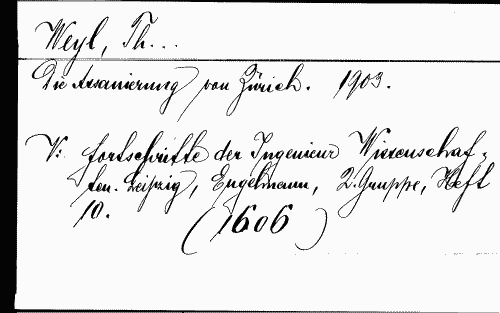 Weyl, Th...
Die Assanierung von Zürich. 1903.
V: Fortschritte der Ingenieur Wissenschaf-
ten. Leipzig, Engelmann, 2. Gruppe, Heft
10.
(1606)